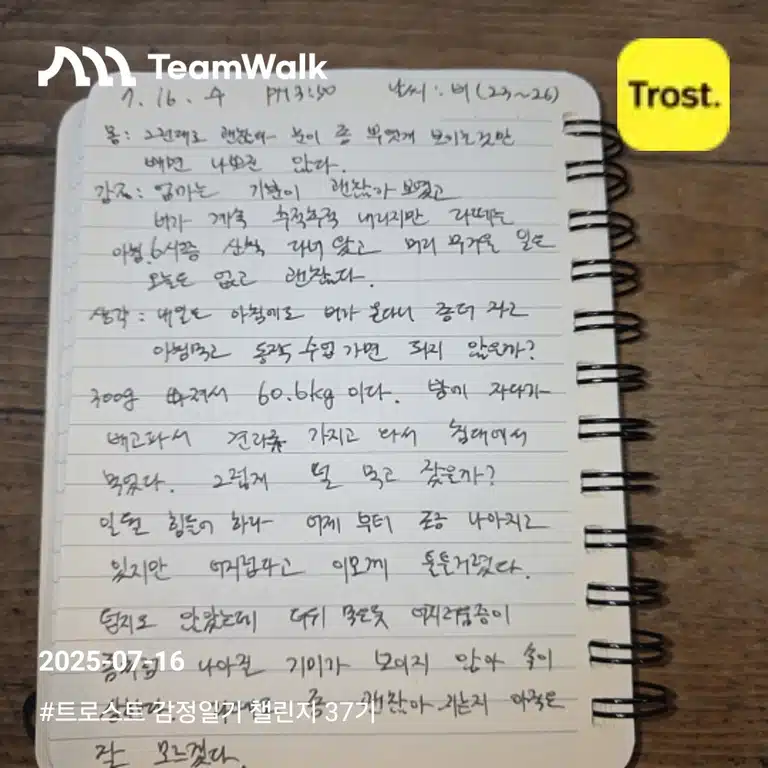 TeamWalk
Trost.
7. 16. 수 PM 3:50 날씨 : 비 (23~26)
몸 : 그런대로 괜찮다 눈이 좀 뿌옇게 보이는것만
빼면 나쁘진 않다.
감정 : 엄마는 기분이 괜찮아 보였고
비가 계속 추적추적 내리지만
아침 6시쯤 산책 다녀 왔고 머리 무거운 일도
오늘도 없고 괜찮다.
생각 : 내일도 아침에도 비가 온다니 좀더 자고
아침먹고 동작 수업 가면 되지 않을까?
300g 빠져서 60.6kg 이다. 밤에 자다가
배고파서 견과류 가지고 와서 침대에서
먹었다. 그렇게 덜 먹고 잤을까?
힘들어 하나 어제 부터 조금 나아지고
있지만 어지럽다고 이모께 툴툴거렸다.
덥지도 않았는데 더위 먹은듯 어지러움증이
나아질 기미가 보이지 않아 속이
좀 괜찮아 지는지 아직은
잘 모르겠다.
2025-07-16
#트로스트 감정일기 챌린지 37기